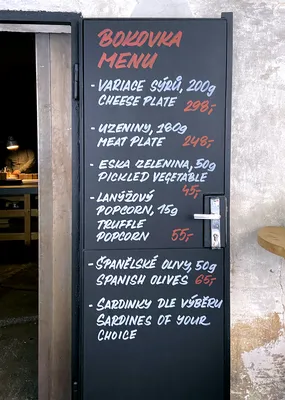 BOKOVKA
MENU
- VARIACE SÝRŮ, 200g
CHEESE PLATE 298,-
- UZENINY, 180g
MEAT PLATE 248,-
- ESKA ZELENINA, 50g
PICKLED VEGETABLE
45,-
- LANÝŽOVÝ
POPCORN, 15g
TRUFFLE
POPCORN 55,-
- ŠPANĚLSKÉ OLIVY, 50g
SPANISH OLIVES 65,-
- SARDINKY DLE VÝBĚRU
SARDINES OF YOUR
CHOICE